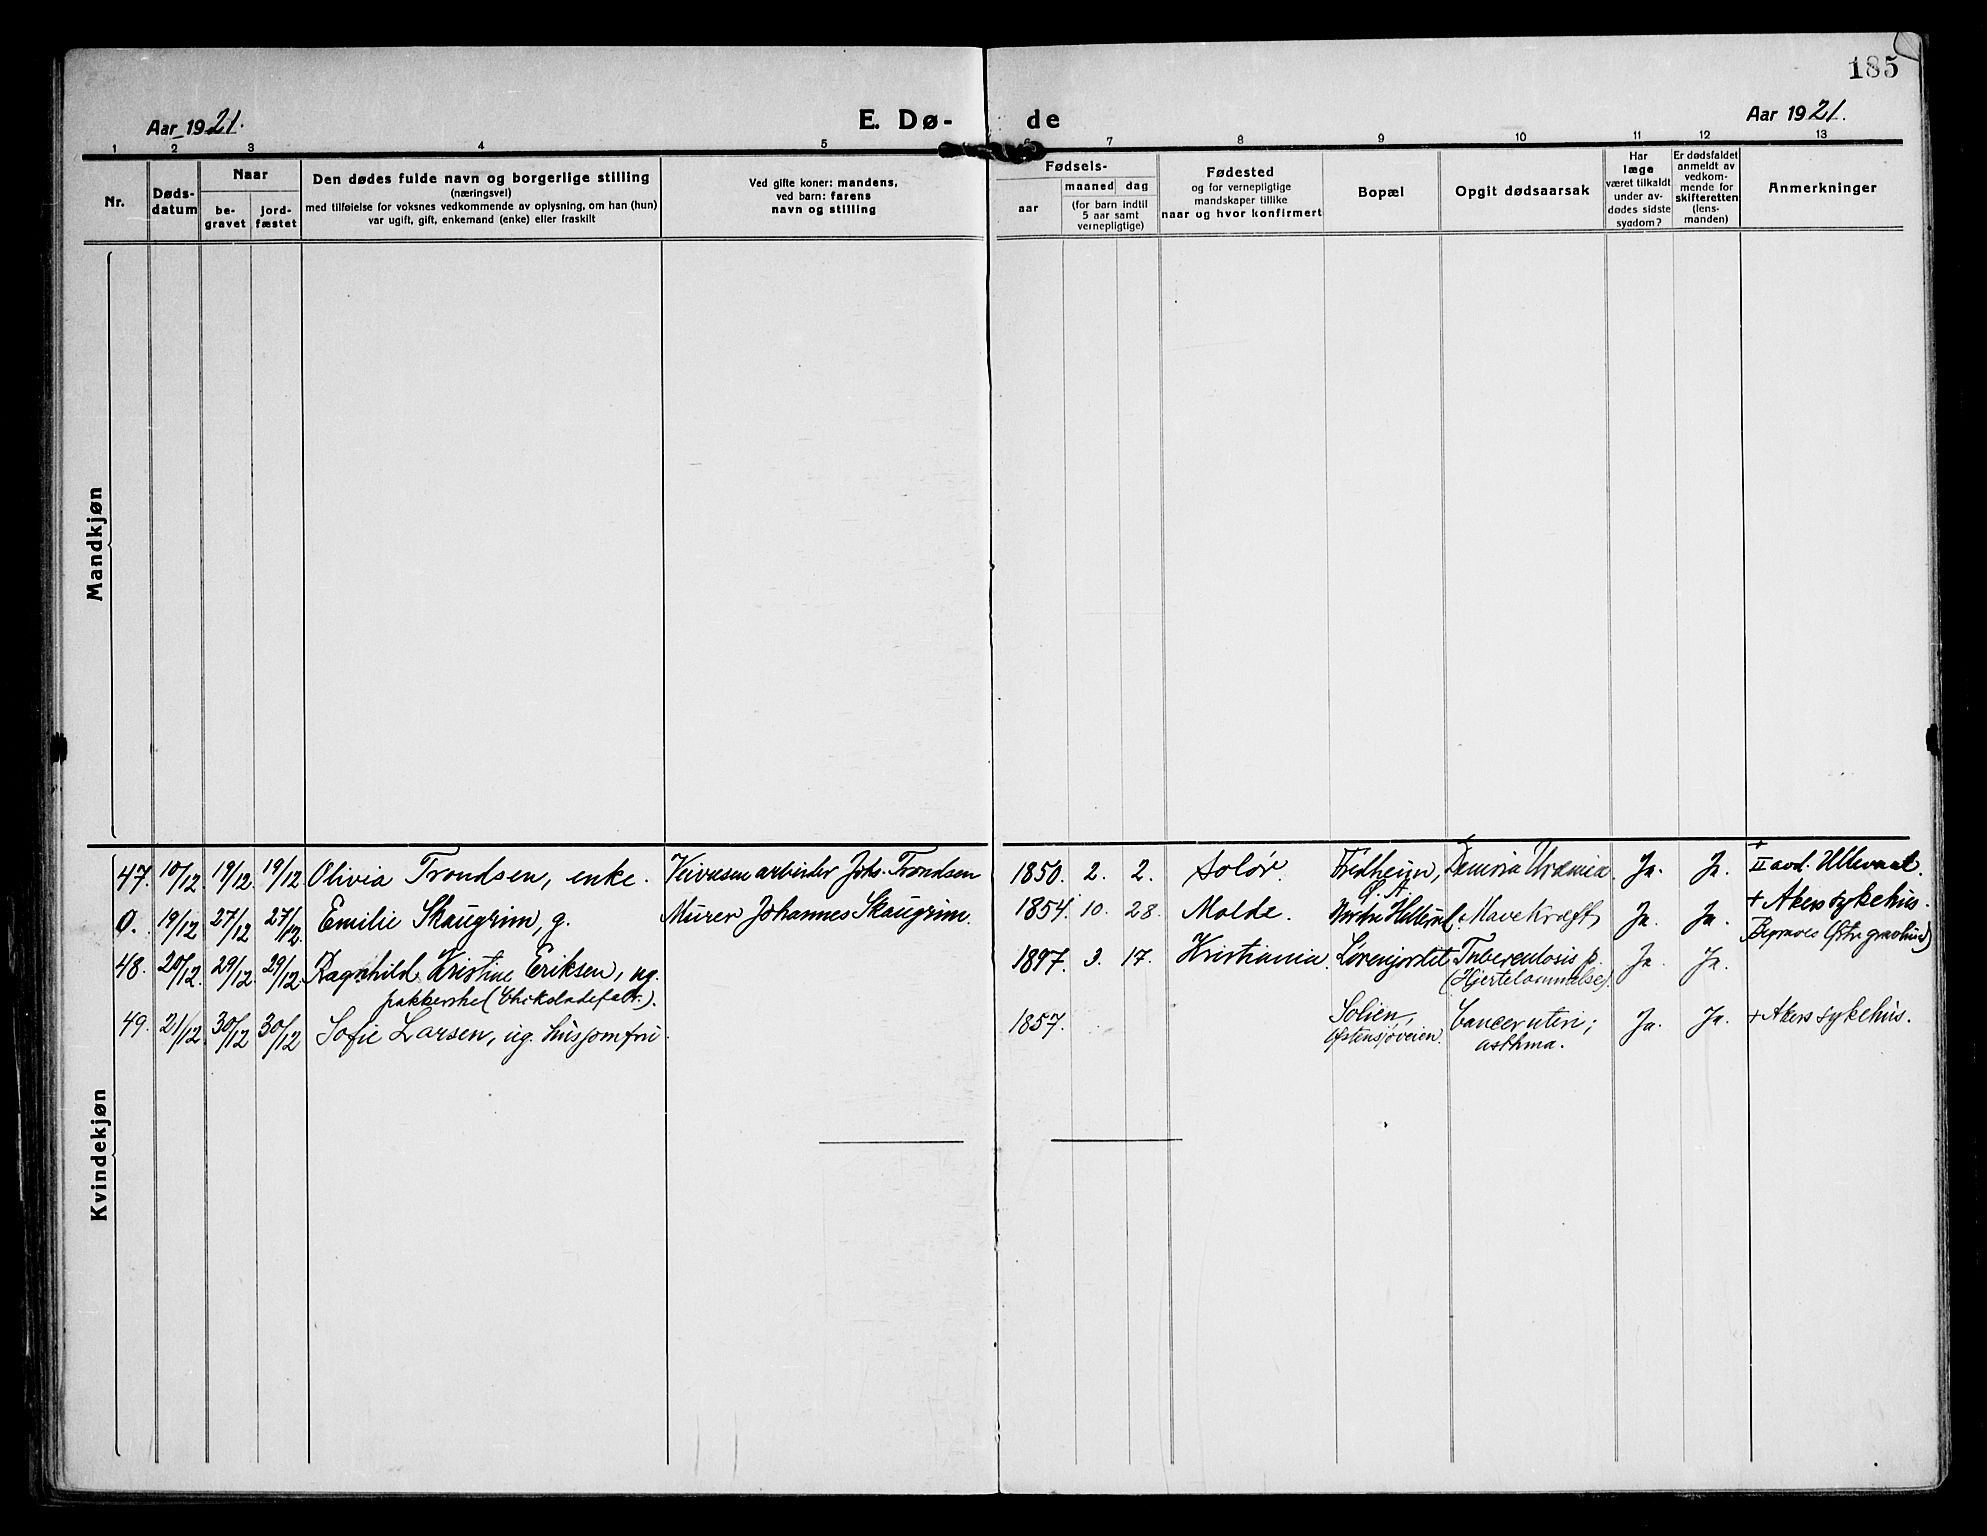 185
Aar 1921.
E. Dø- de
Aar 1921.
1 2 3 4 5 6 7 8 9 10 11 12 13
Nr.
Døds-
datum
Naar
be-
gravet
jord-
fæstet
Den dødes fulde navn og borgerlige stilling
(næringsvei)
med tilføielse for voksnes vedkommende av oplysning, om han (hun)
var ugift, gift, enkemand (enke) eller fraskilt
Ved gifte koner: mandens,
ved barn: farens
navn og stilling
Fødsels-
aar
maaned dag
(for barn indtil
5 aar samt
vernepligtige)
Fødested
og for vernepligtige
mandskaper tillike
naar og hvor konfirmert
Bopæl
Opgit dødsaarsak
Har
læge
været tilkaldt
under av-
dødes sidste
sygdom?
Er dødsfaldet
anmeldt av
vedkom-
mende for
skifteretten
(lens-
manden)
Anmerkninger
Mandkjøn
Kvindekjøn
47. 10/12 19/12 19/12 Olivia Trondsen, enke. Veivæsenarbeider Johs. Trondsen 1850. 2. 2. Solør. Fredheim, Ø. A. Uræmia Ja. Ja. + II avd. Ullevaal.
0. 19/12 27/12 27/12 Emilie Skaugrim, g. Murer Johannes Skaugrim. 1854. 10. 28. Molde. Nordre Mavekræft, Ja. Ja. + Akers sykehus.
(Begraves Østre gravlund)
48. 20/12 29/12 29/12 Ragnhild Kristine Eriksen, ug. 1897. 3. 17. Kristiania. Lørenjordet Tuberculosis p. Ja. Ja.
pakkerske (Chokoladefabr.). (Hjertelammelse)
49. 21/12 30/12 30/12 Sofie Larsen, ug. husjomfru. 1857. Solien, Cancer uteri; Ja. Ja. + Akers sykehus.
Østensjøveien. asthma.